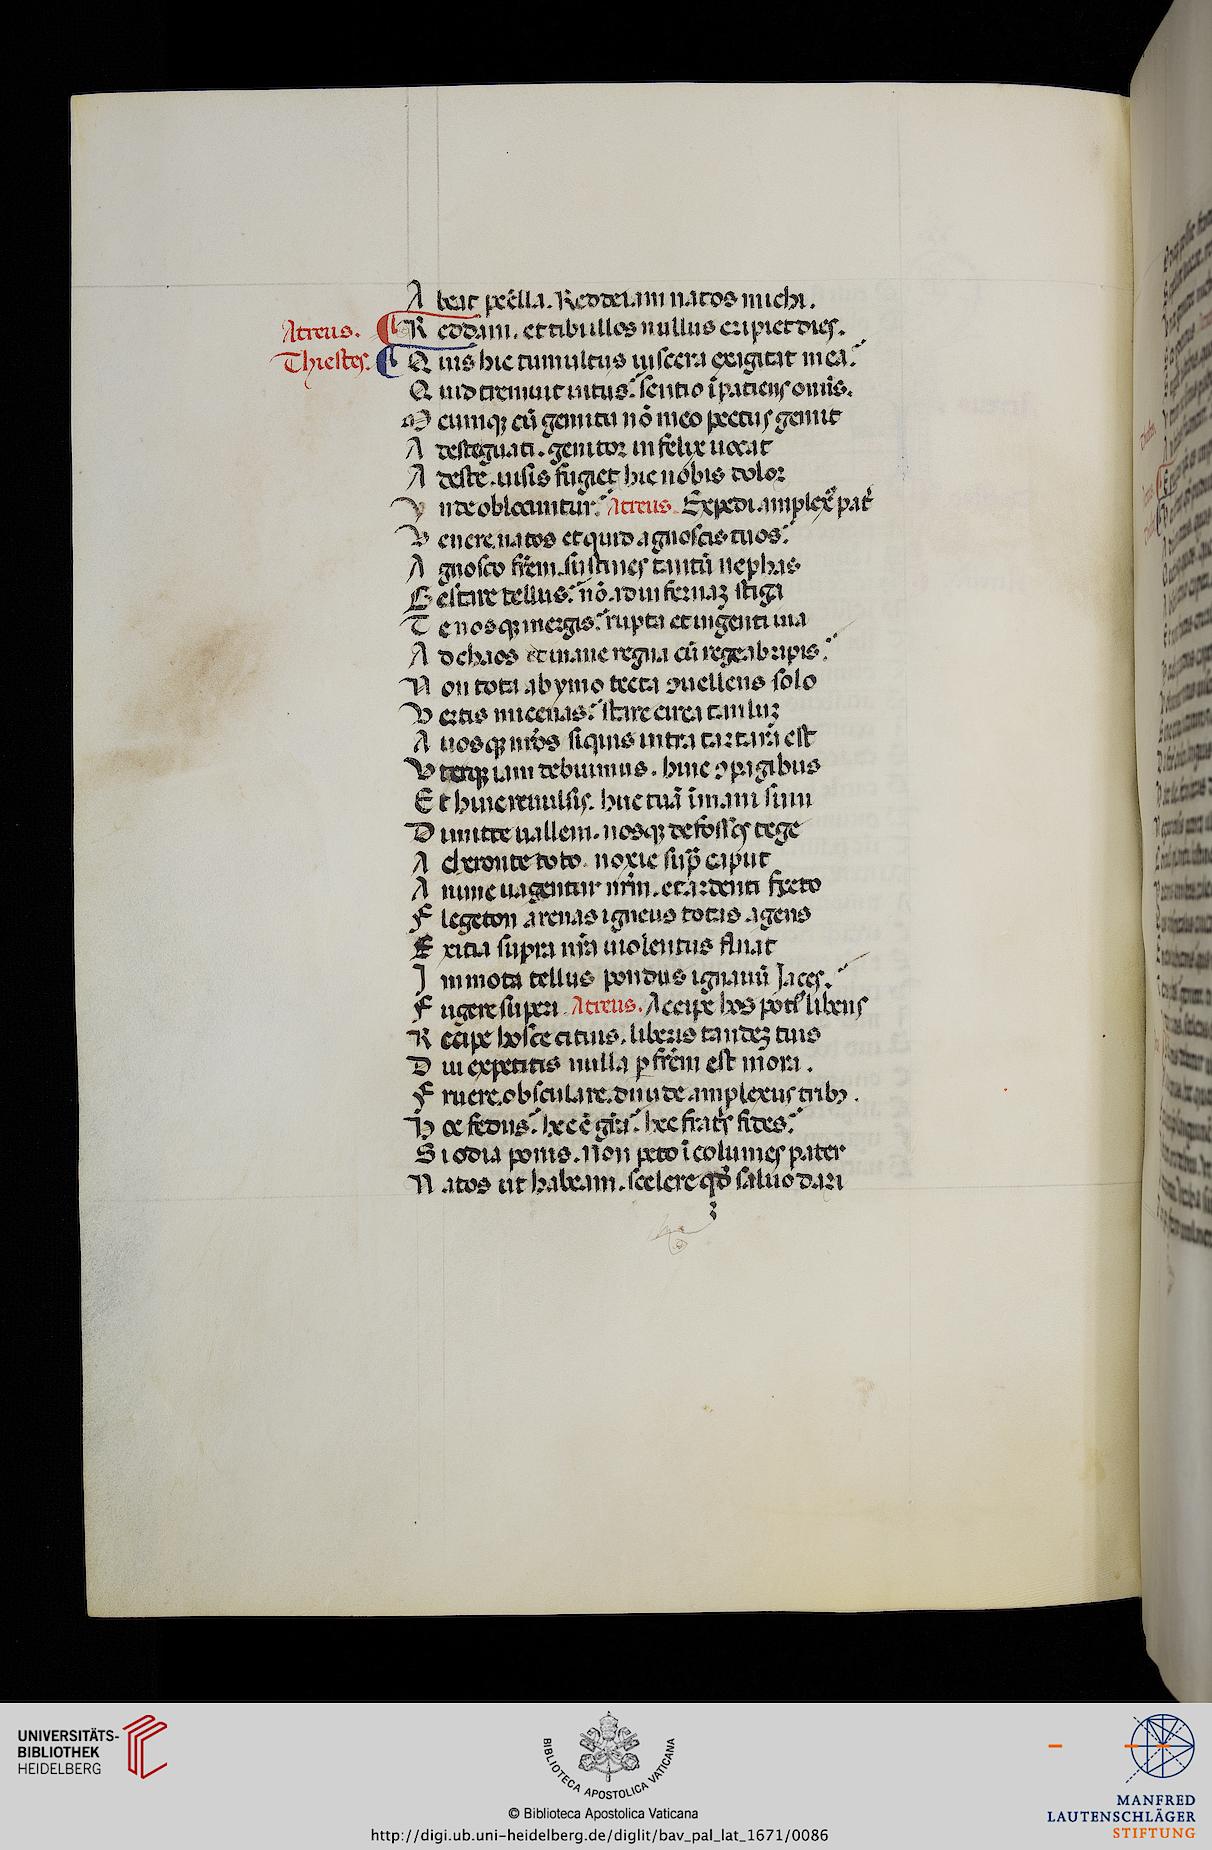 A beat pcella. Reddeiam natos michi.
Atreus. R eddam. et tibi illos nullus eripiet dies.
Thiestes. Q uis hic tumultus uiscera exigitat mea?
Q uid tremuit intus? sentio īpatiens onus.
M eumq; cū gemitu nō meo pectus gemit
A deste gnati. genitor infelix uocat
A deste. uisis fugiet hic nobis dolor
V nde oblocuntur? Atreus. Expedi amplex' pat'
V enere. natos et quid agnoscis tuos?
A gnosco fr̄em. sustines tantū nephas
G estare tellus? nō ad infernaz stiga
T e nosq; mergis? rupta et ingenti uia
A d chaos et inane regna cū rege abripis?
N on tota ab ymo tecta ɔuellens solo
V ertis micenas? stare circa tanluz
A uosq; nr̄os siquis intra tartarū est
V terq; iam debuimus. hinc ɔpagibus
E t hinc reuulsis. huc tuā īmani sinu
D imitte uallem. nosq; defossos tege
A cheronte toto. noxie sup̄ caput
A nime uagentur nr̄m. et ardenti freto
F legeton arenas igneus totas agens
E xitia supra nr̄a uiolentus fluat
I mmota tellus pondus ignauū Jaces?
F ugere superi. Atreus. Accipe hos poti' libens
R ecipe hosce citius. liberis tandez tuis
D iu expetitis nulla p fr̄em est mora.
F ruere. obsculare. diuide amplexus trib;.
H oc fedus? hec ē gr̄a? hec frat's fides?
S i odia ponis. Non peto īcolumes pater
N atos ut habeam. scelere qd̄ saluo dari
UNIVERSITÄTS-
BIBLIOTHEK
HEIDELBERG
BIBLIOTECA APOSTOLICA VATICANA
© Biblioteca Apostolica Vaticana
http://digi.ub.uni-heidelberg.de/diglit/bav_pal_lat_1671/0086
MANFRED
LAUTENSCHLÄGER
STIFTUNG